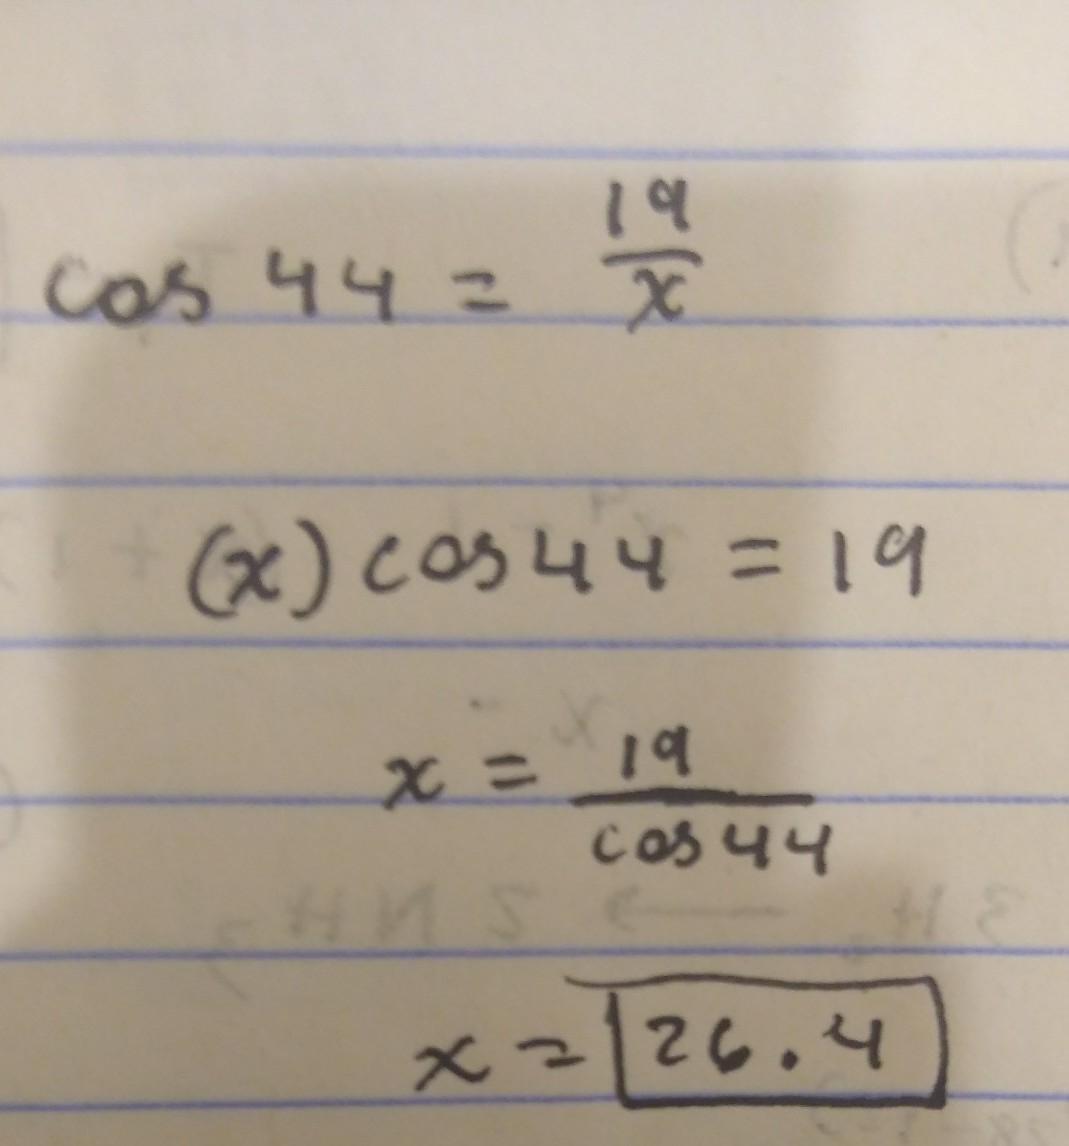 cos 44 = 19/x
(x) cos 44 = 19
x = 19/cos 44
x = 26.4